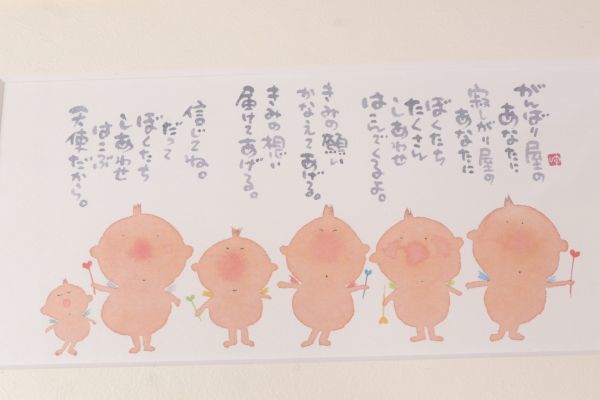 がんばり屋の
あなたに
寂しがり屋の
あなたに
ぼくたち
たくさん
しあわせ
はこんでくるよ。
きみの願い
かなえてあげる。
きみの想い
届けてあげる。
信じてね。
だって
ぼくたち
しあわせ
はこぶ
天使だから。